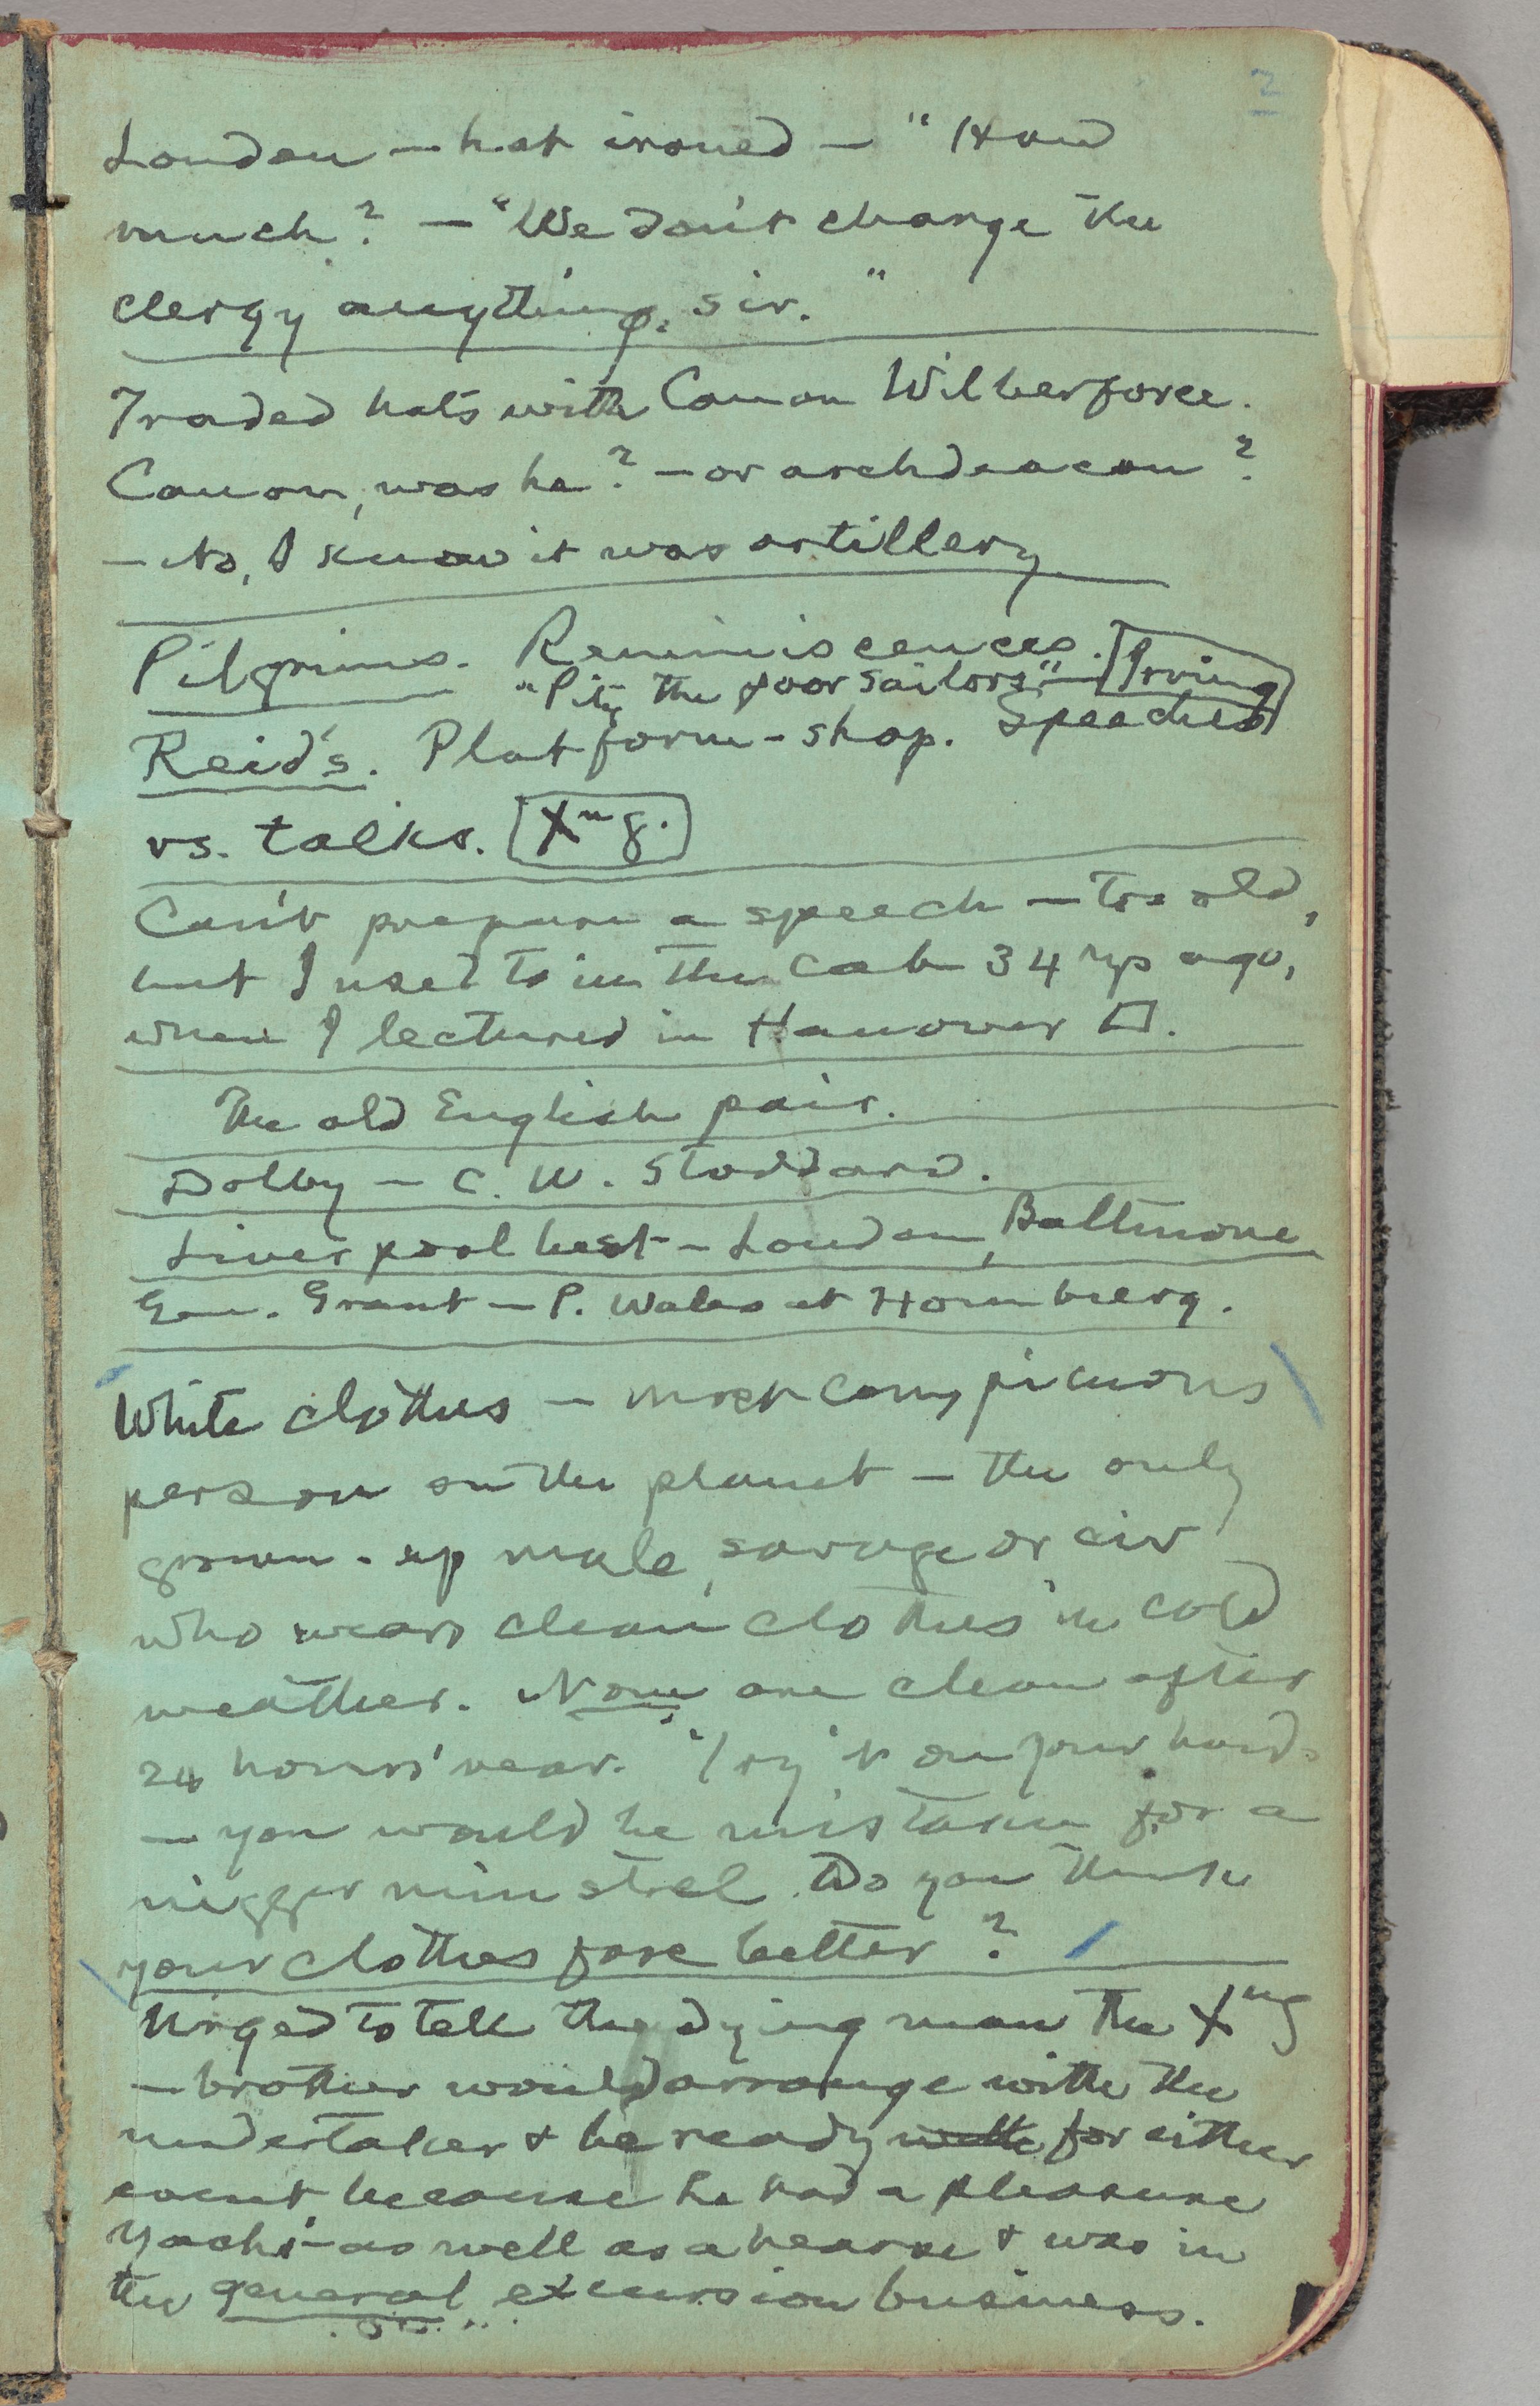 2
London — hat ironed — "How
much? — "We don't charge the
clergy anything, sir."
Traded hats with Canon Wilberforce.
Canon, was he? — or archdeacon?
— No, I know it was artillery
Pilgrims. Reminiscences.
"Pity the poor sailors" — Irving
Reid's. Platform-shop. Speeches
vs. talks. Xng.
Can't prepare a speech — too old,
but I used to in the cab 34 yrs ago,
when I lectured in Hanover □.
The old English pair.
Dolby — C. W. Stoddard.
Liverpool best — London, Baltimore
Gen. Grant — P. Wales at Homburg.
White clothes — most conspicuous
person on the planet — the only
grown-up male, savage or civ
who wears clean clothes in cold
weather. None are clean after
24 hours' wear. Try it on your hands
— you would be mistaken for a
nigger minstrel. Do you think
your clothes fare better?
Urged to tell the dying man the Xng
— brother would arrange with the
undertaker & be ready with for either
event because he had a pleasure
yacht as well as a hearse & was in
the general excursion business.